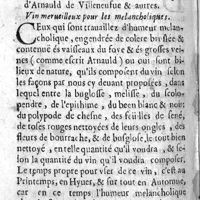 d'Arnauld de Villeneufue & autres.
Vin merueilleux pour les melancholiques.
CEux qui sont trauaillez d'humeur melan-
cholique, engendrée de colere bruslée &
contenuë és vaisseaux du faye & és grosses veines
( comme escrit Arnauld ) ou qui sont bi-
lieux de nature, qu'ils composent du vin selon
les façons par nous cy deuant proposées, dans
lequel entre la buglosse, melisse, la scolo-
pendre, de l'epithime, du been blanc & noir
du polypode de chesne, des feuilles de sené,
de roses rouges nettoyées de leurs ongles, des
fleurs de bourrache, & de buglosse, le tout bien
nettoyé, en telle quantité qu'il voudra, & se-
lon la quantité du vin qu'il voudra composer.
Le temps propre pour vser de ce vin, c'est au
Printemps, en Hyuer, & sur tout en Automne,
car en ce temps l'humeur melancholique